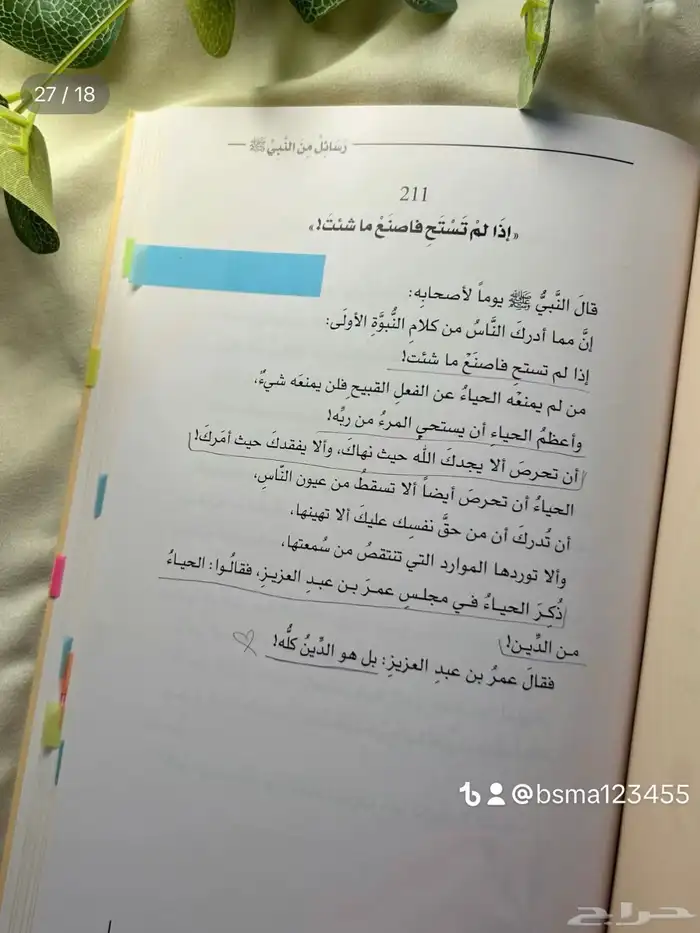 27 / 18
رَسَائِلُ مِنَ النَّبِيِّ ﷺ
211
«إذَا لمْ تَسْتَحِ فاصنَعْ ما شئتَ!»
قالَ النَّبيُّ ﷺ يوماً لأصحابِه:
إنَّ مما أدركَ النَّاسُ من كلامِ النُّبوَّةِ الأولَى:
إذا لم تستحِ فاصنَعْ ما شئت!
من لم يمنعْه الحياءُ عن الفعلِ القبيحِ فلن يمنعَه شيءٌ،
وأعظمُ الحياء أن يستحي المرءُ من ربِّه!
أن تحرصَ ألا يجدكَ اللهُ حيث نهاكَ، وألا يفقدكَ حيث أمَركَ!
الحياءُ أن تحرصَ أيضاً ألا تسقطُ من عيون النَّاسِ،
أن تُدركَ أن من حقَّ نفسِك عليكَ ألا تهينها،
وألا توردها الموارد التي تنتقصُ من سُمعتها،
ذُكِرَ الحياءُ في مجلسِ عمرَ بن عبدِ العزيزِ، فقالُوا: الحياءُ
من الدِّين!
فقالَ عمرُ بن عبدِ العزيزِ: بل هو الدِّينُ كلُّه!
@bsma123455
حراج